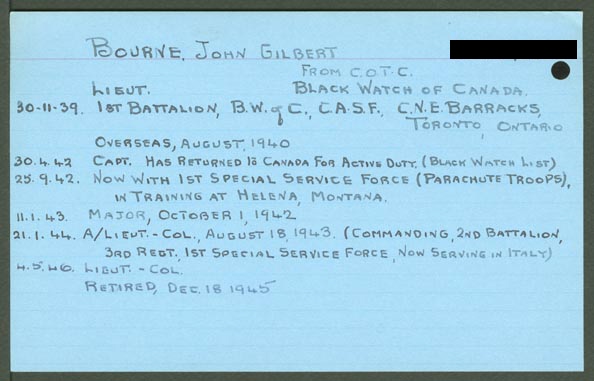 BOURNE, JOHN GILBERT
FROM C.O.T.C.
LIEUT. BLACK WATCH OF CANADA.
30-11-39. 1ST BATTALION, B.W. of C., C.A.S.F., C.N.E. BARRACKS,
TORONTO, ONTARIO
OVERSEAS, AUGUST, 1940
30.4.42 CAPT. HAS RETURNED TO CANADA FOR ACTIVE DUTY. (BLACK WATCH LIST)
25.9.42. NOW WITH 1ST SPECIAL SERVICE FORCE (PARACHUTE TROOPS),
IN TRAINING AT HELENA, MONTANA.
11.1.43. MAJOR, OCTOBER 1, 1942
21.1.44. A/LIEUT.-COL., AUGUST 18, 1943. (COMMANDING, 2ND BATTALION,
3RD REGT., 1ST SPECIAL SERVICE FORCE, NOW SERVING IN ITALY)
4.5.46. LIEUT.-COL.
RETIRED, DEC. 18 1945